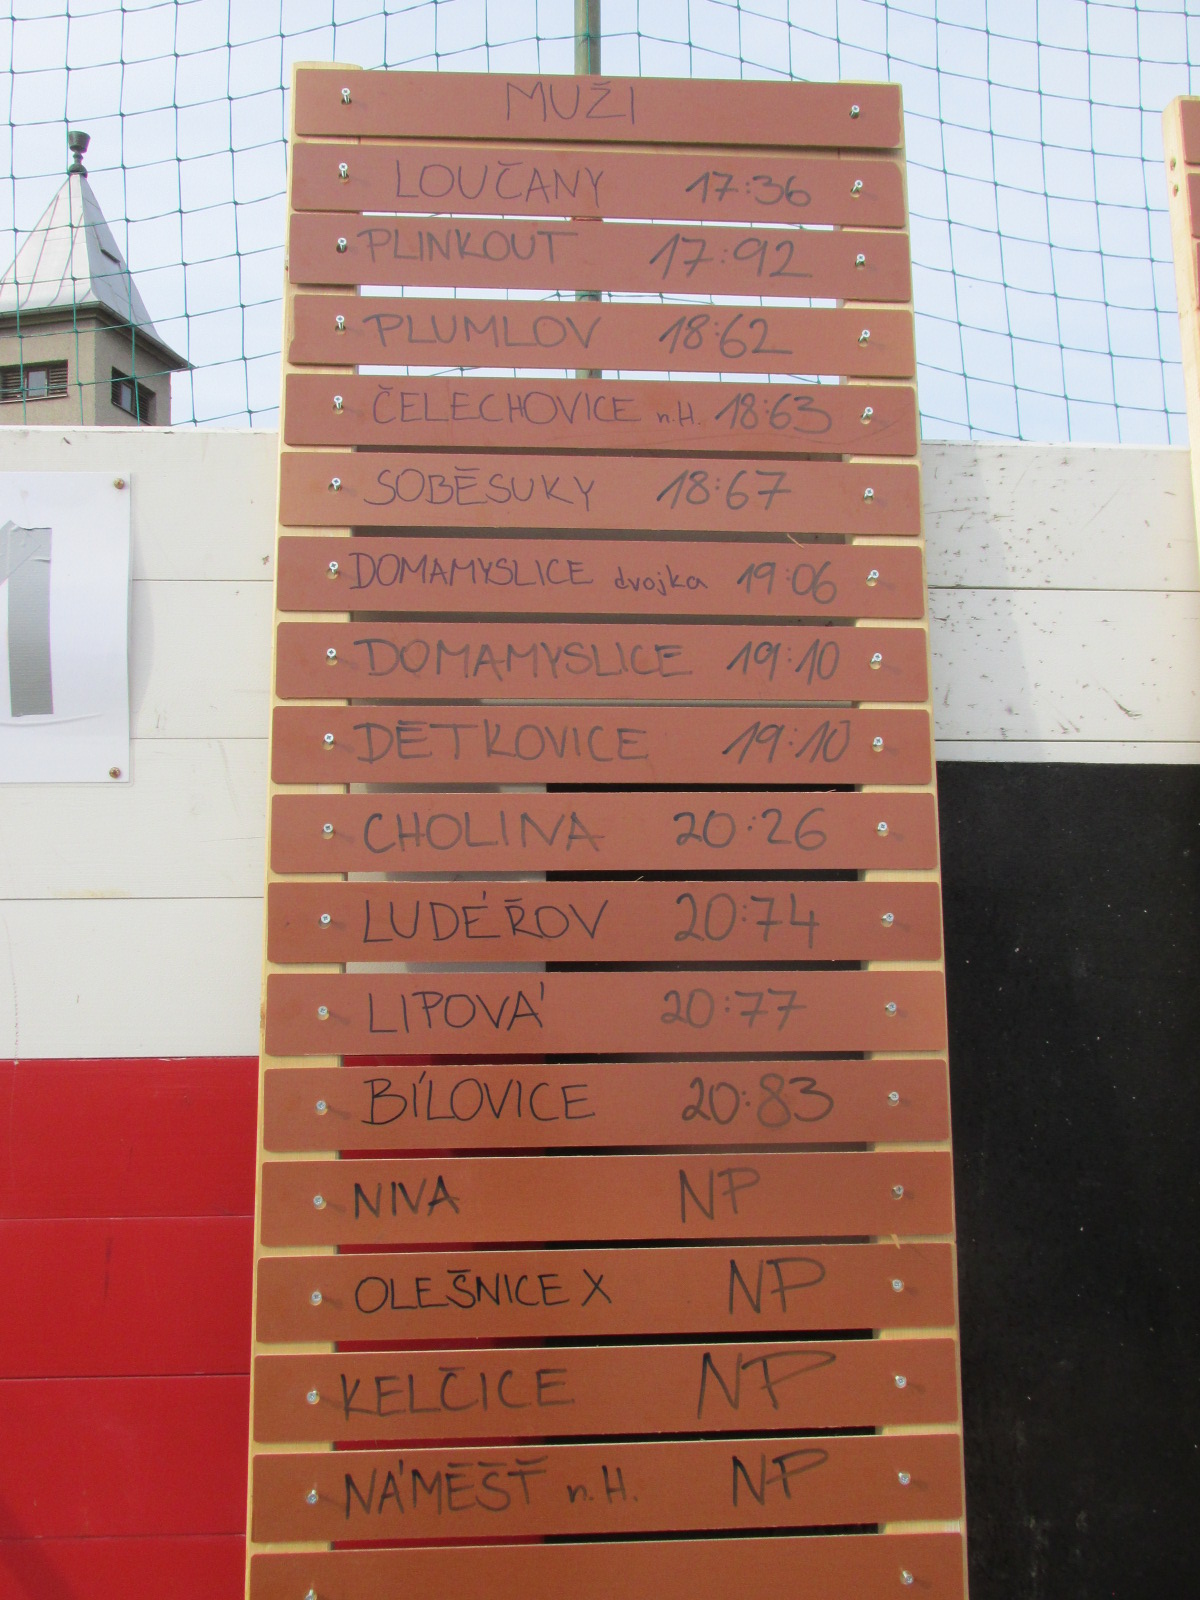 MUŽI
LOUČANY 17:36
PLINKOUT 17:92
PLUMLOV 18:62
ČELECHOVICE n.H. 18:63
SOBĚSUKY 18:67
DOMAMYSLICE dvojka 19:06
DOMAMYSLICE 19:10
DĚTKOVICE 19:10
CHOLINA 20:26
LUDÉŘOV 20:74
LIPOVÁ 20:77
BÍLOVICE 20:83
NIVA NP
OLEŠNICE X NP
KELČICE NP
NÁMĚŠŤ n.H. NP
1